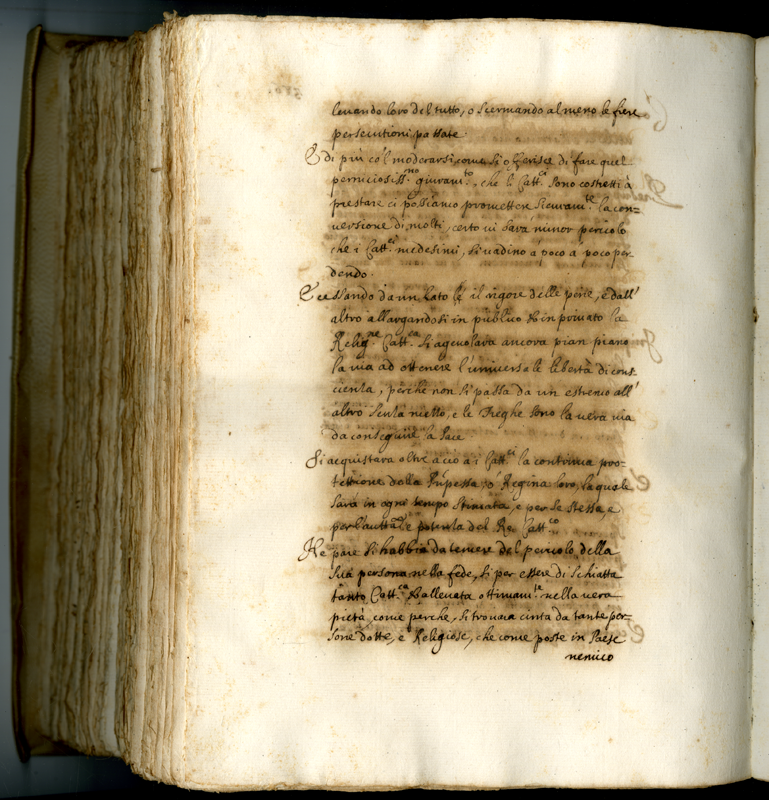 leuando loro del tutto, o scemando almeno le fiere
persecutioni passate.
E di più co'l moderarsi, come si offerisce di fare quel
perniciosiss.no giuram.to, che li Catt.ci sono costretti à
prestare ci possiamo promettere sicuram.te la con=
uersione di molti, certo ui sarà minor pericolo
che i Catt.ci medesimi, si uadino à poco à poco per=
dendo.
E cessando da un lato il rigore delle pene, e dall'
altro allargandosi in publico et in priuato la
Relig.ne Catt.ca si ageuolarà ancora pian piano
la uia ad ottenere l'uniuersale libertà di cons=
cienza, perche non si passa da un estremo all'
altro senza mezzo, e le Treghe sono la uera uia
da conseguire la pace.
Si acquistarà oltre acciò à i Catt.ci la continua pro=
tettione della Prñpessa, ò Regina loro, la quale
sarà in ogni tempo stimata, e per se stessa, e
per l'autta, e potenza del Re Catt.co
Ne pare si habbia da temere del pericolo della
sua persona nella fede, si per essere di schiatta
tanto Catt.ca et alleuata ottimam.te nella uera
pietà, come perche, si trouarà cinta da tante per=
sone dotte, e Religiose, che come poste in Paese
nemico